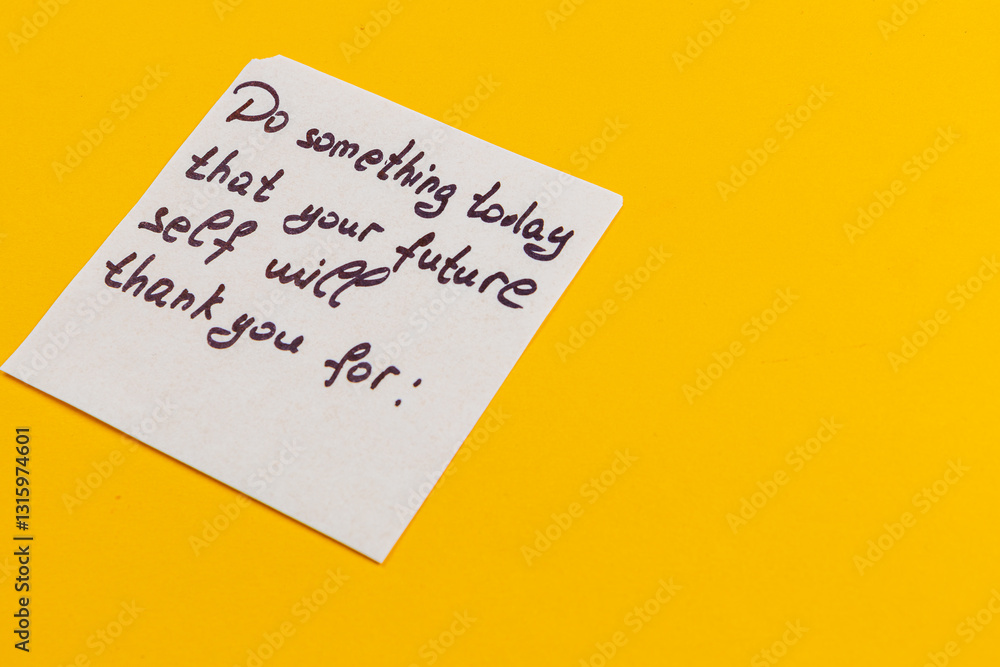 Do something today
that your future
self will
thank you for:
Adobe Stock | #1315974601